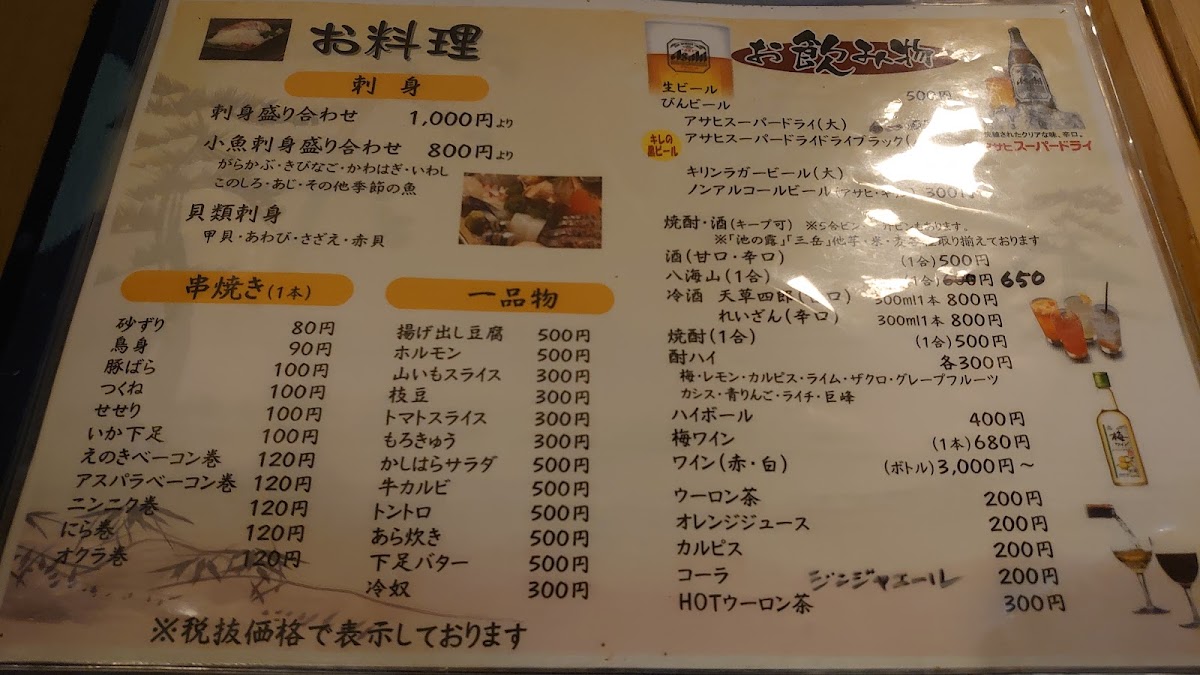 お料理
刺身
刺身盛り合わせ 1,000円より
小魚刺身盛り合わせ 800円より
がらかぶ・きびなご・かわはぎ・いわし
このしろ・あじ・その他季節の魚
貝類刺身
甲貝・あわび・さざえ・赤貝
串焼き(1本)
砂ずり 80円
鳥身 90円
豚ばら 100円
つくね 100円
せせり 100円
いか下足 100円
えのきベーコン巻 120円
アスパラベーコン巻 120円
ニンニク巻 120円
にら巻 120円
オクラ巻 120円
一品物
揚げ出し豆腐 500円
ホルモン 500円
山いもスライス 300円
枝豆 300円
トマトスライス 300円
もろきゅう 300円
かしはらサラダ 500円
牛カルビ 500円
トントロ 500円
あら炊き 500円
下足バター 500円
冷奴 300円
※税抜価格で表示しております
Asahi
お飲み物
生ビール 500円
びんビール
アサヒスーパードライ(大)
キレの黒ビール
アサヒスーパードライドライブラック(
キリンラガービール(大)
ノンアルコールビール(アサヒ・キ 300円
されたクリアな味、辛口。
アサヒスーパードライ
焼酎・酒(キープ可) ※5合ビン
※「池の露」「三岳」他芋・米・麦 取り揃えております
酒(甘口・辛口) (1合)500円
八海山(1合) (1合) 円 650
冷酒 天草四郎( 口) 300ml1本 800円
れいざん(辛口) 300ml1本 800円
焼酎(1合) (1合)500円
酎ハイ 各300円
梅・レモン・カルピス・ライム・ザクロ・グレープフルーツ
カシス・青りんご・ライチ・巨峰
ハイボール 400円
梅ワイン (1本)680円
ワイン(赤・白) (ボトル)3,000円～
ウーロン茶 200円
オレンジジュース 200円
カルピス 200円
コーラ ジンジャエール 200円
HOTウーロン茶 300円